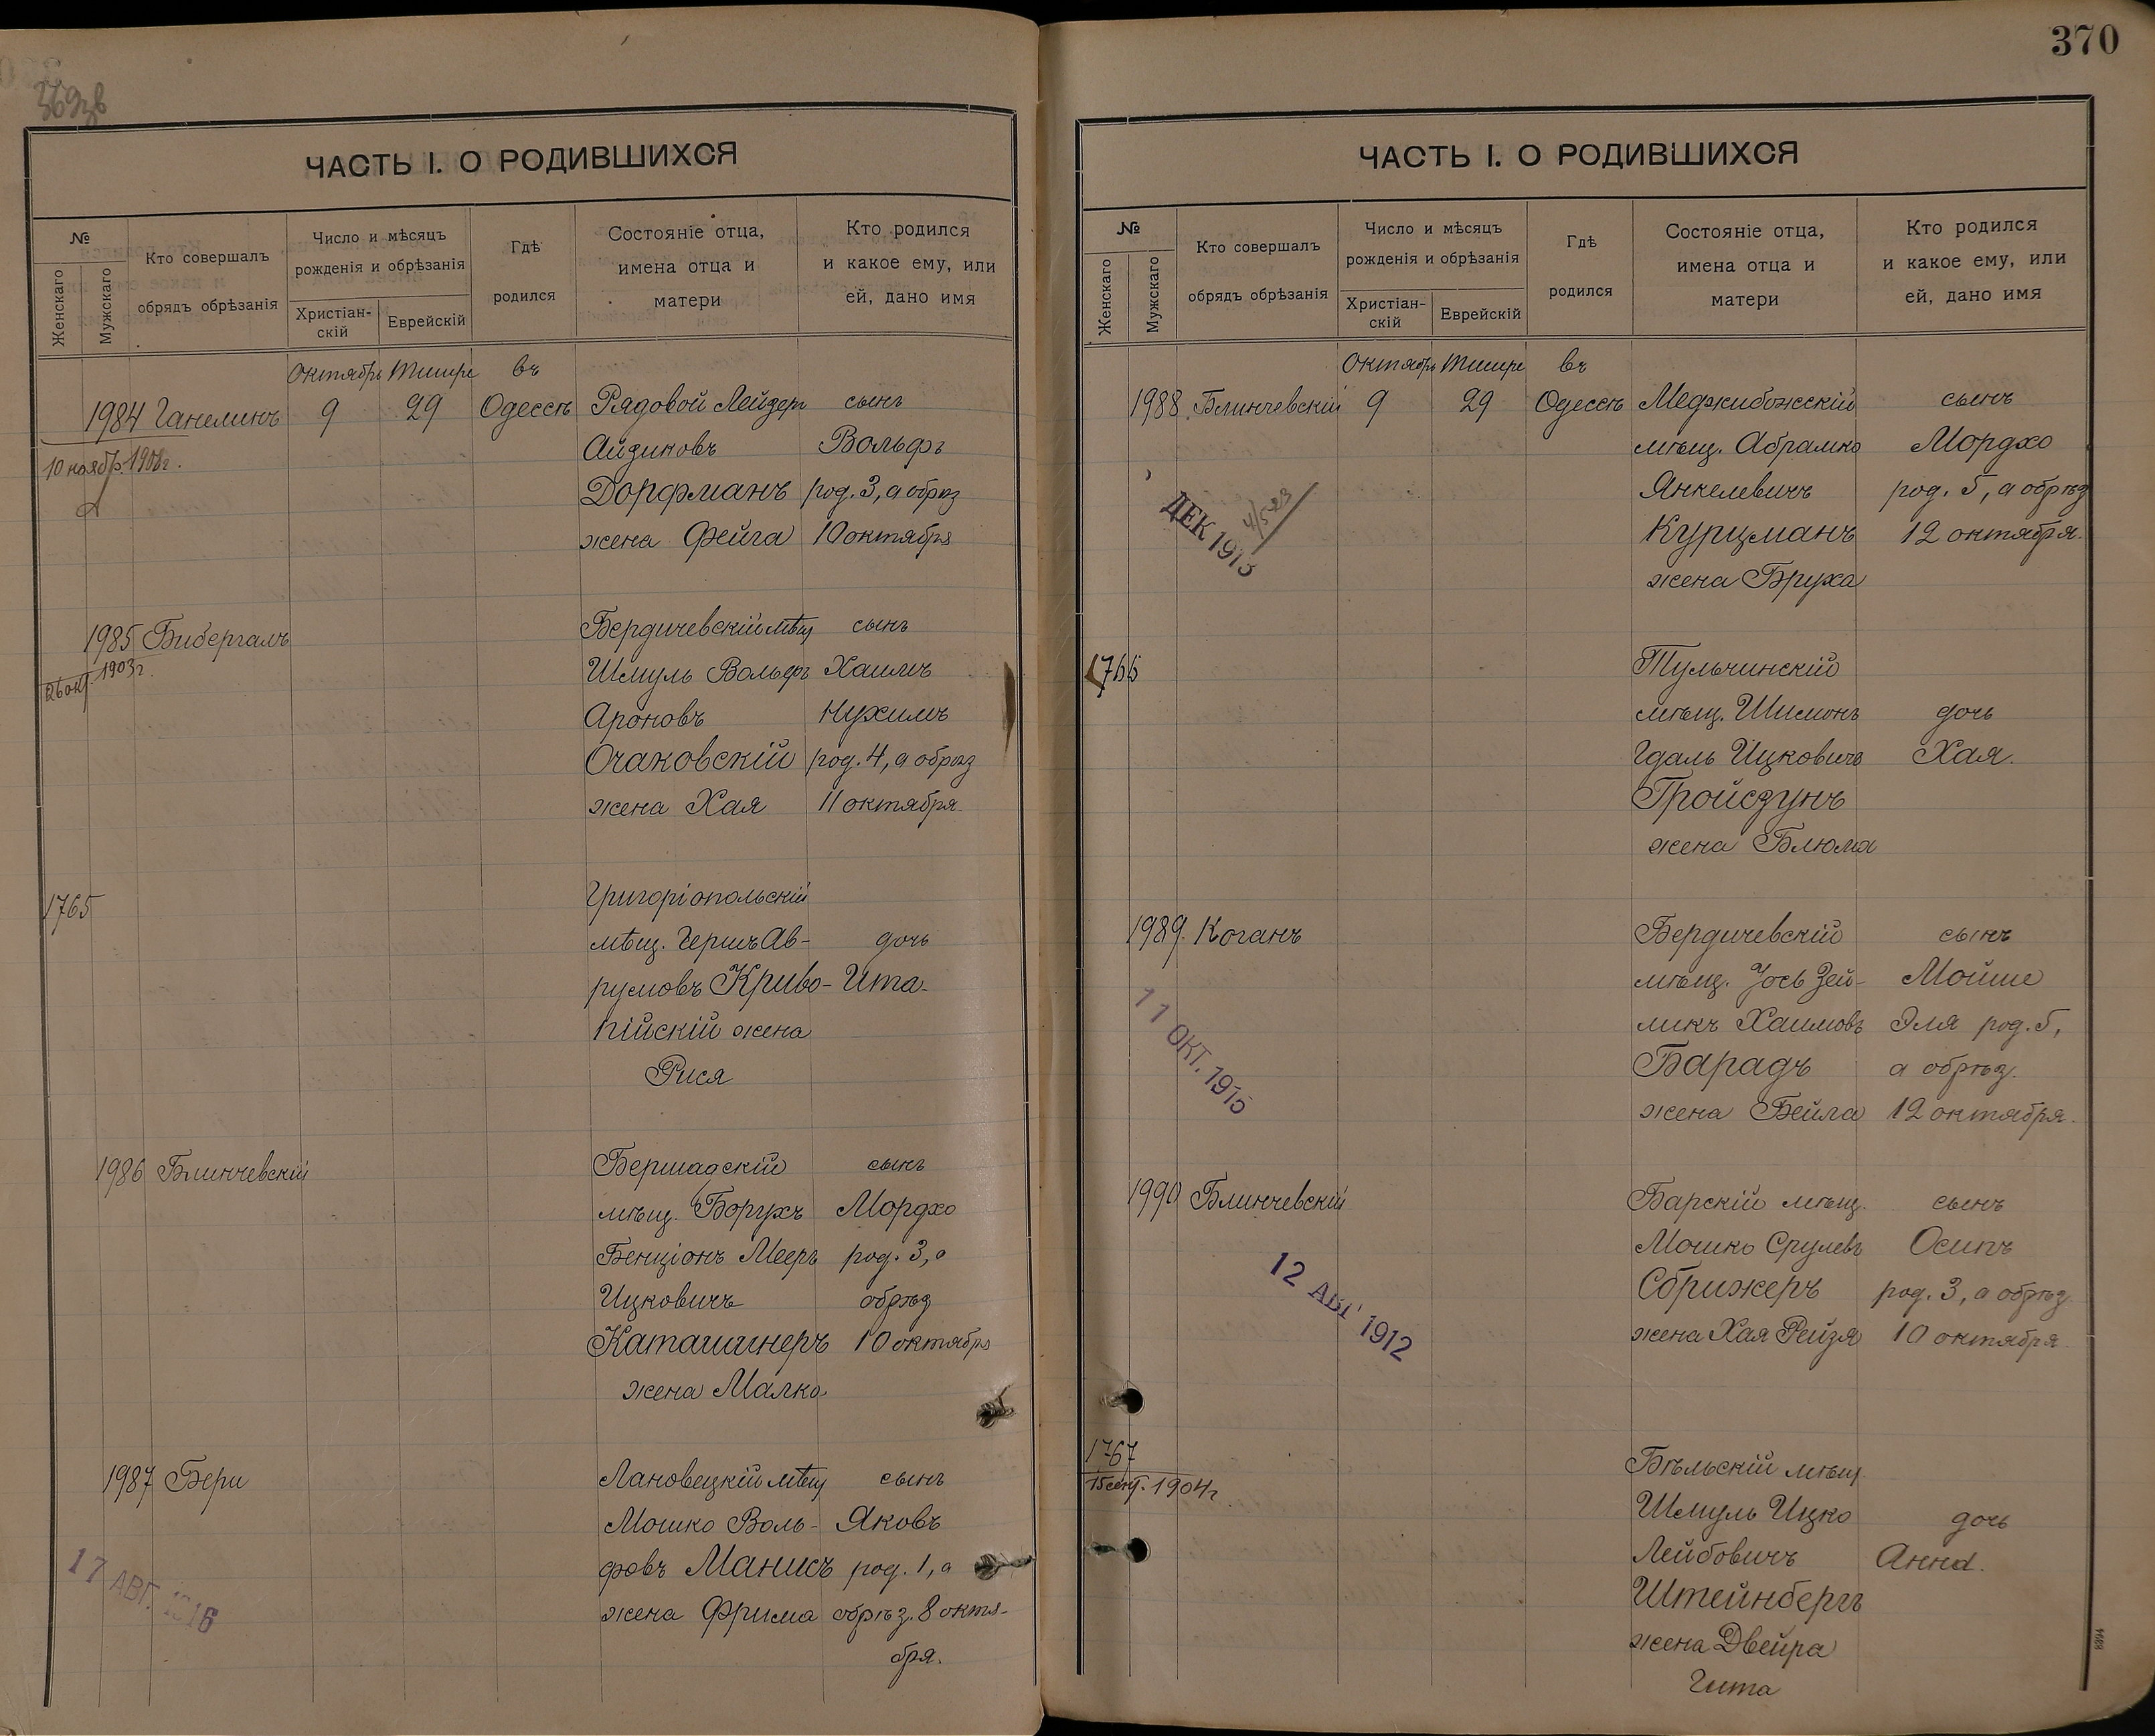 370
ЧАСТЬ I. О РОДИВШИХСЯ
№
Женскаго
Мужскаго
Кто совершалъ
обрядъ обрѣзанія
Число и мѣсяцъ
рожденія и обрѣзанія
Христіан-
скій
Еврейскій
Гдѣ
родился
Состояніе отца,
имена отца и
матери
Кто родился
и какое ему, или
ей, дано имя
Октябрь Тишре въ
1984 Ганелинъ 9 29 Одессѣ Рядовой Лейзеръ сынъ
10 ноябр. 1908г. Айзиковъ Вольфъ
Дорфманъ род. 3, а обрѣз
жена Фейга 10 октября
1985 Бибергалъ Бердичевскій мѣщ сынъ
26 окт. 1903г. Шмуль Вольфъ Хаимъ
Ароновъ Нухимъ
Очаковскій род. 4, а обрѣз
жена Хая 11 октября
1765 Григоріопольскій
мѣщ. Гершъ Ав- дочь
румовъ Криво- Ита
пійскій жена
Рися
1986 Блинчевскій Бершадскій сынъ
мѣщ. Борухъ Мордхо
Бенціонъ Мееръ род. 3, а
Ицковичъ обрѣз
Каташинеръ 10 октября
жена Малка
1987 Бери Лановецкій мѣщ сынъ
Мошко Воль- Яковъ
фовъ Манисъ род. 1, а
17 АВГ. 1916
жена Фрима обрѣз. 8 октя-
бря.
ЧАСТЬ I. О РОДИВШИХСЯ
№
Женскаго
Мужскаго
Кто совершалъ
обрядъ обрѣзанія
Число и мѣсяцъ
рожденія и обрѣзанія
Христіан-
скій
Еврейскій
Гдѣ
родился
Состояніе отца,
имена отца и
матери
Кто родился
и какое ему, или
ей, дано имя
Октябрь Тишре въ
1988 Блинчевскій 9 29 Одессѣ Меджибожскій сынъ
мѣщ. Абрамко Мордхо
Янкелевичъ род. 5, а обрѣз
ДЕК 1913
Курцманъ 12 октября.
жена Бруха
1766 Тульчинскій
мѣщ. Шимонъ дочь
Гдаль Ицковичъ Хая.
Тройсзунъ
жена Блюма
1989. Коганъ Бердичевскій сынъ
мѣщ. Іось Зей- Мойше
ликъ Хаимовъ Эля род. 5,
11 ОКТ. 1915
Барадъ а обрѣз.
жена Бейла 12 октября.
1990 Блинчевскій Барскій мѣщ. сынъ
Мошко Срулевъ Осипъ
Сбрижеръ род. 3, а обрѣз
12 АВГ 1912
жена Хая Рейзя 10 октября
1767 Бѣльскій мѣщ
15 сент. 1904г. Шмуль Ицко дочь
Лейбовичъ Анна.
Штейнбергъ
жена Двейра
Гита